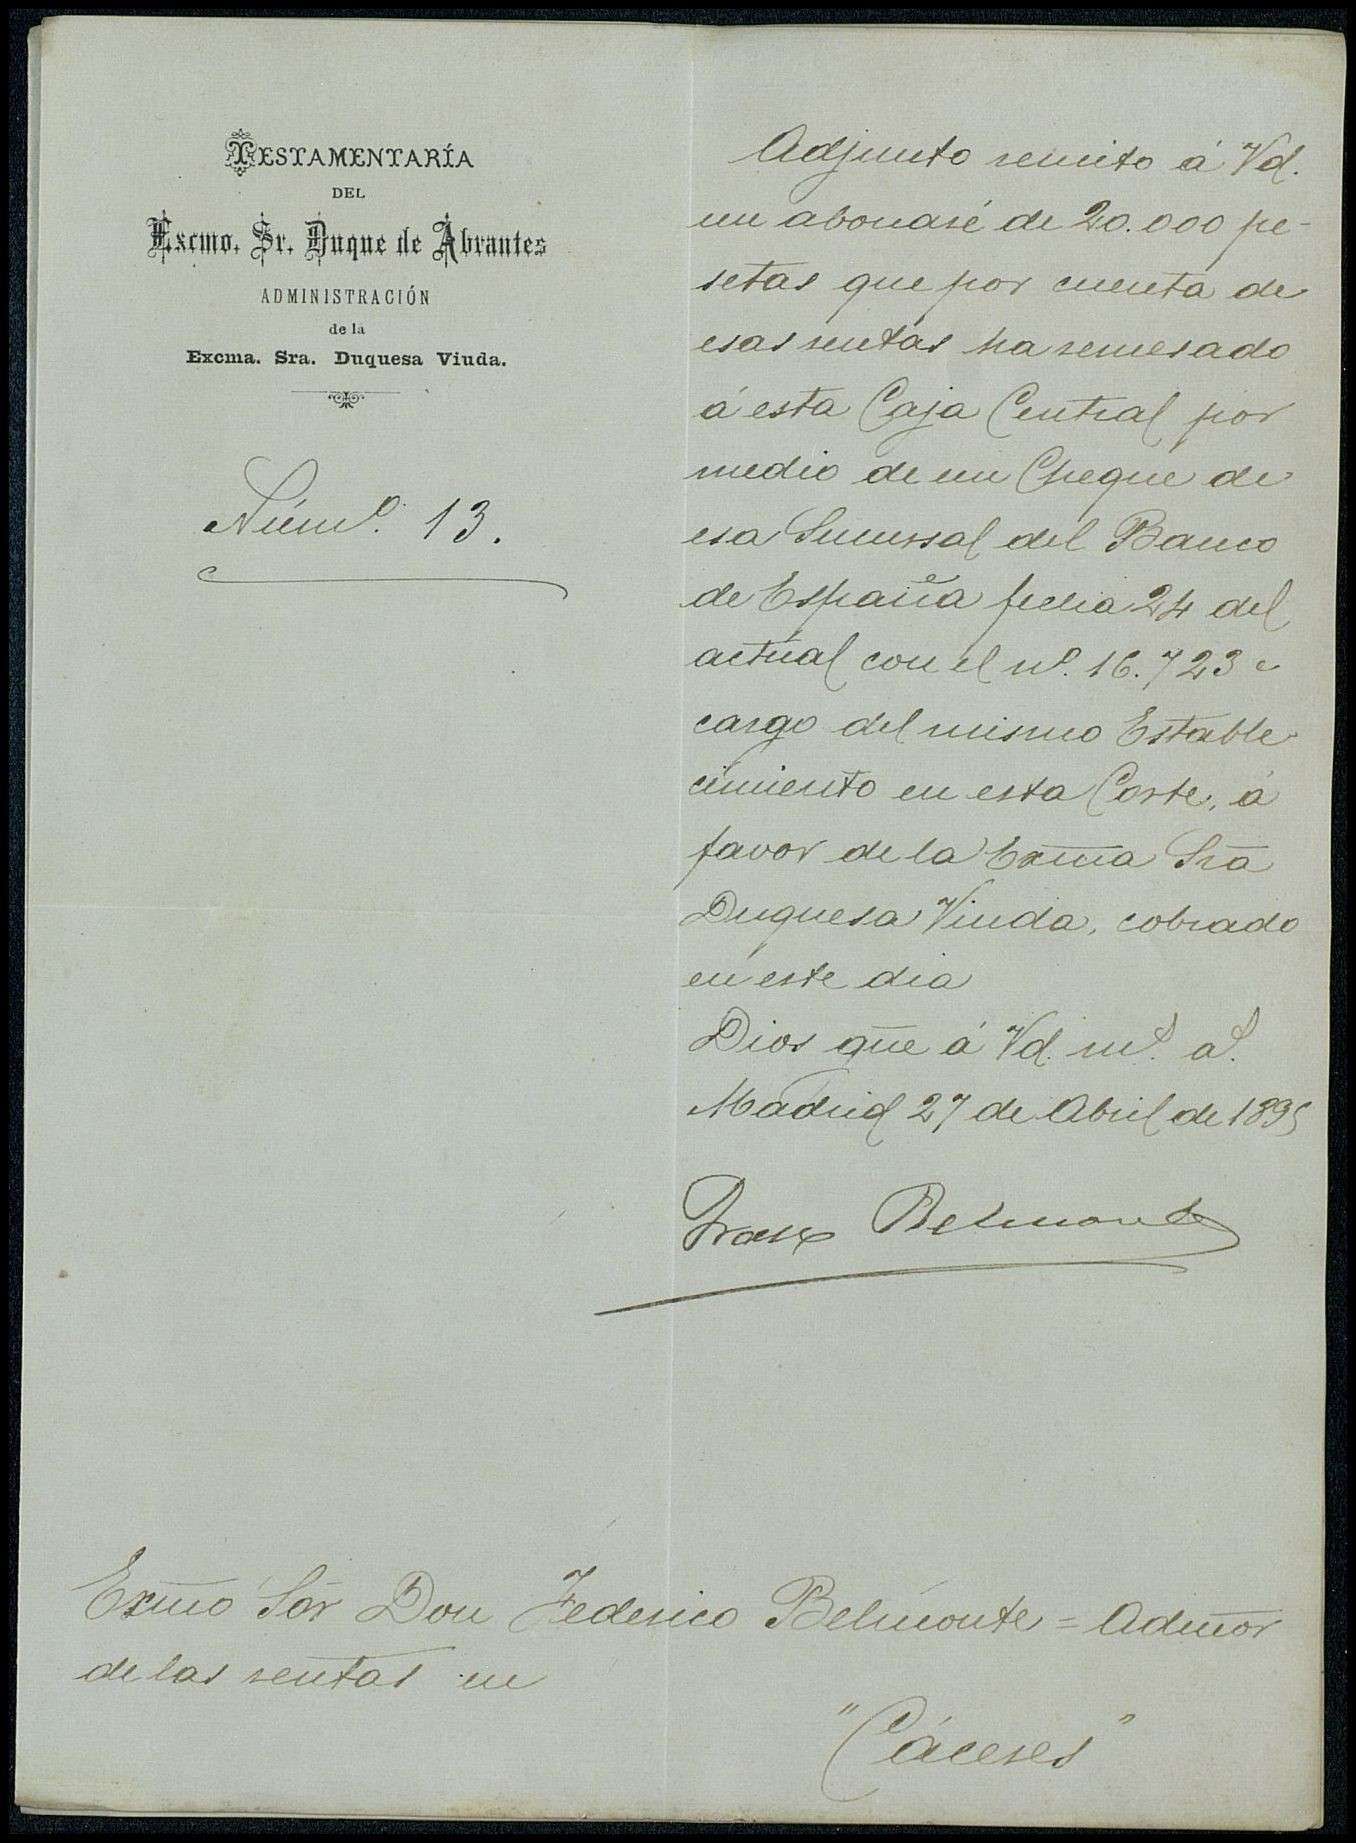 TESTAMENTARÍA
DEL
Excmo. Sr. Duque de Abrantes
ADMINISTRACIÓN
de la
Excma. Sra. Duquesa Viuda.
Núm.o 13.
Adjunto remito á Vd.
un abonaré de 20.000 pe-
setas que por cuenta de
esas rentas ha remesado
á esta Caja Central por
medio de un Cheque de
esa Sucursal del Banco
de España fecha 24 del
actual con el n.o 16.723 a
cargo del mismo Estable-
cimiento en esta Corte, á
favor de la Exma Sra
Duquesa Viuda, cobrado
en este dia
Dios gue á Vd. m.s a.s
Madrid 27 de Abril de 1895
Franco Belmonte
Exmo Sor Don Federico Belmonte = Admor
de las rentas en
"Cáceres"